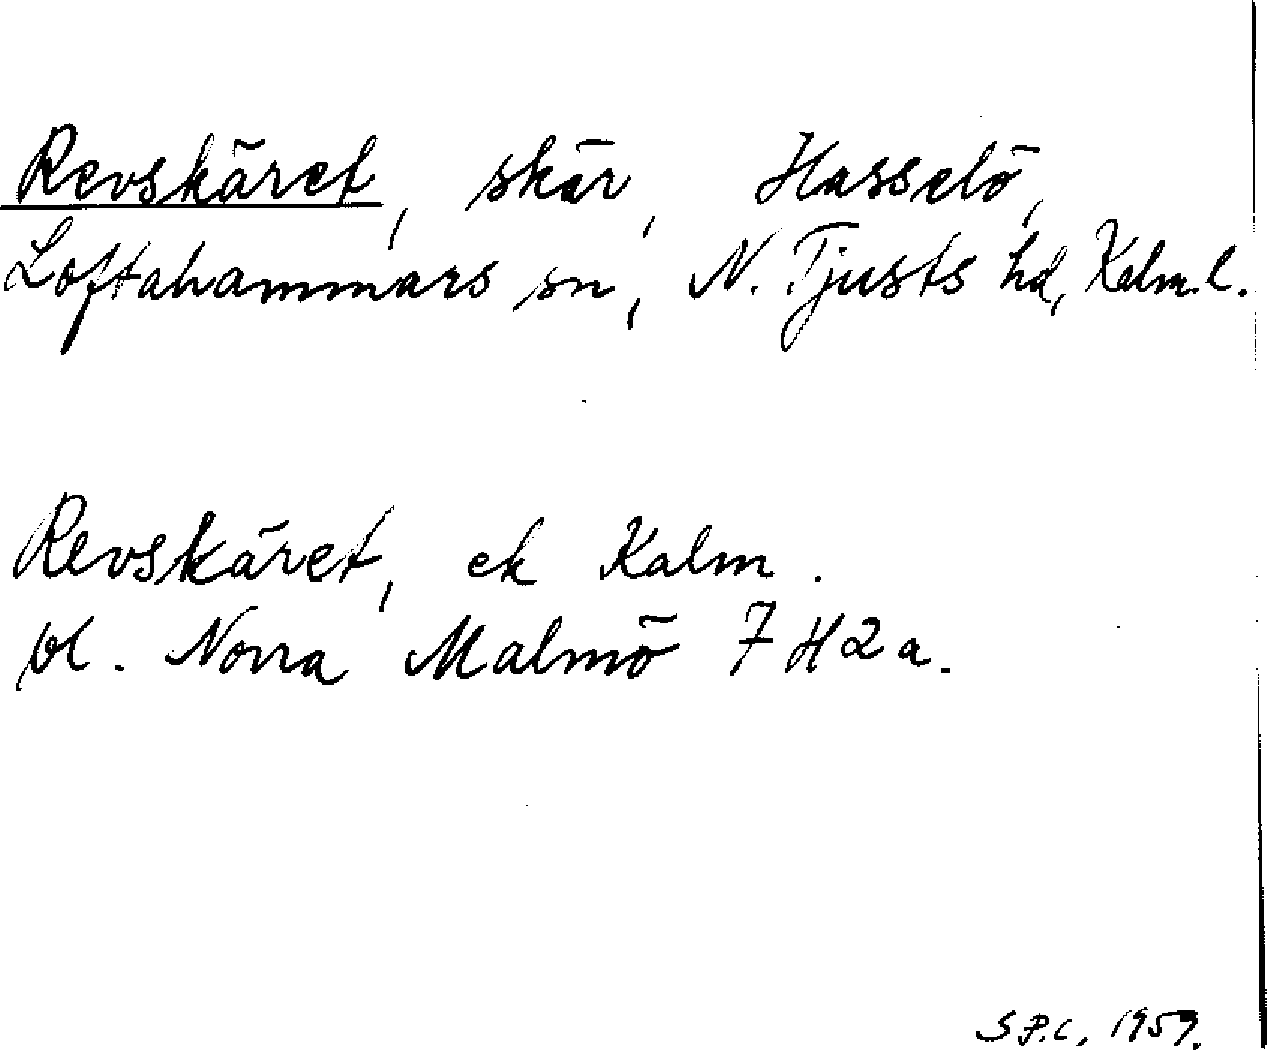 Revskäret, skär, Hasselö,
Loftahammars sn, N. Tjusts hd, Kalm. l.
Revskäret, ek Kalm.
bl. Norra Malmö 7 H 2 a.
S.P.C, 1959.